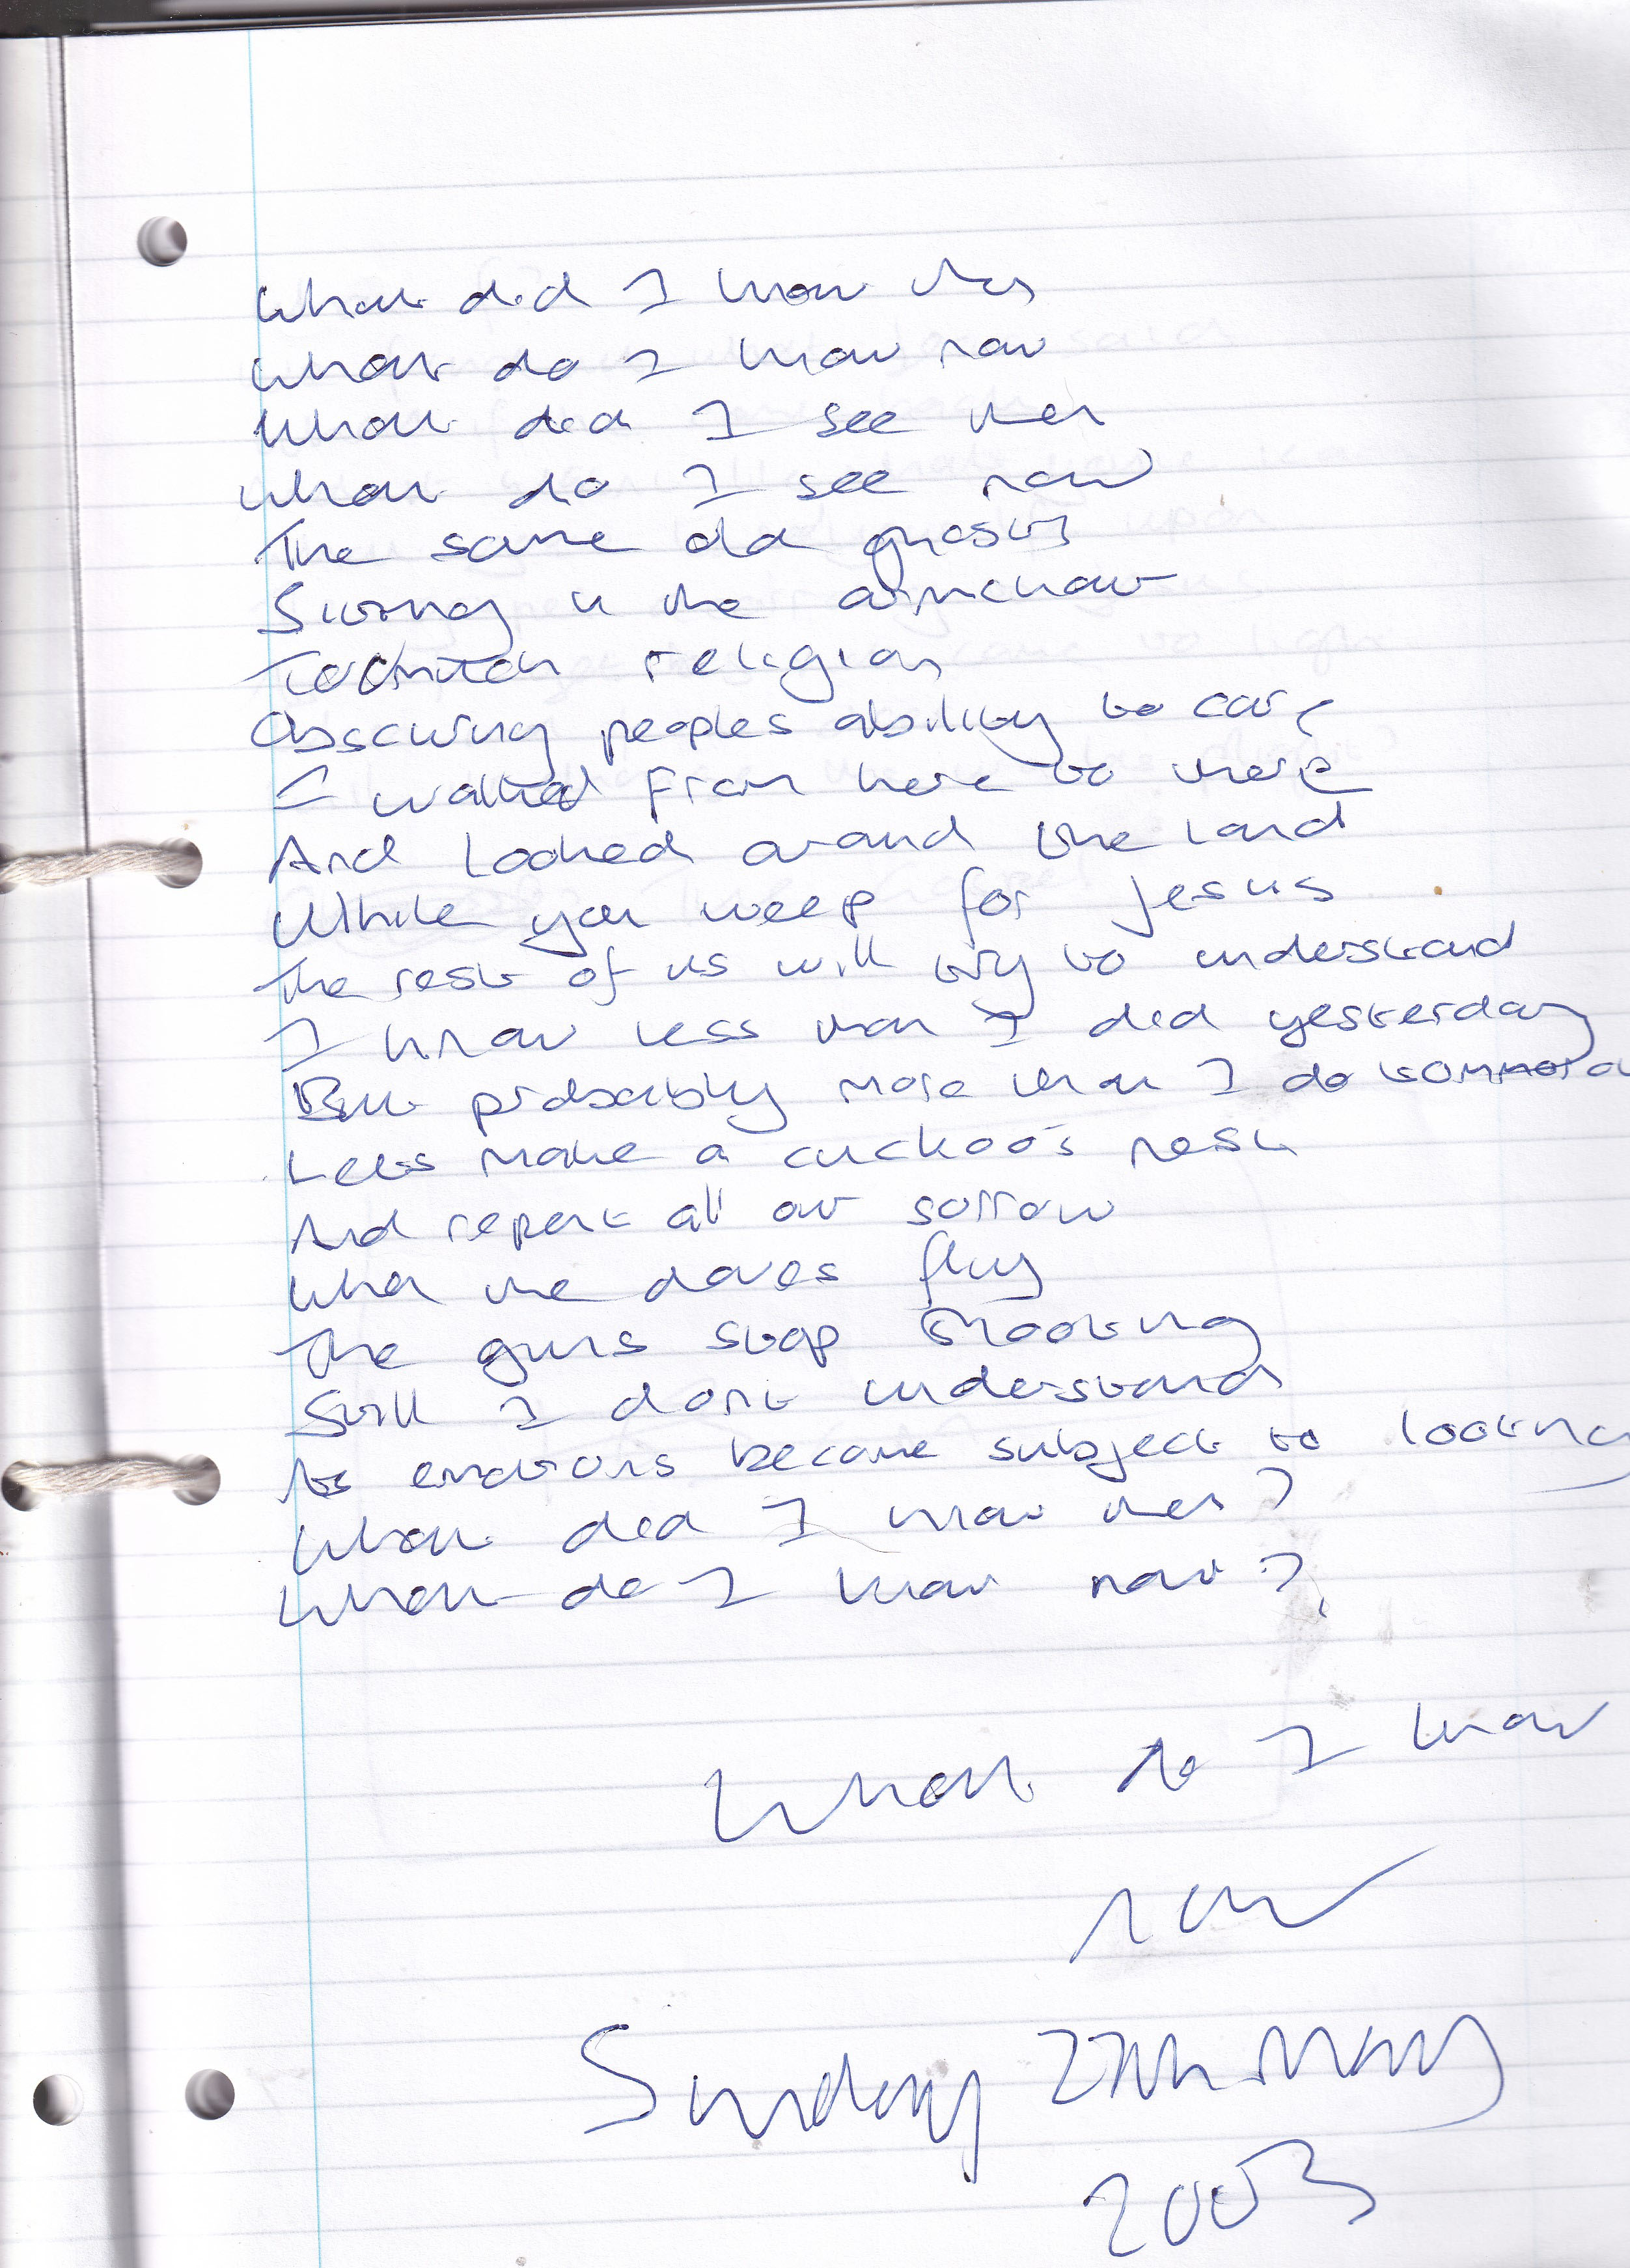 What did I know then
What do I know now
What did I see then
What do I see now
The same old ghosts
Sitting in the armchair
religion
Obscuring peoples ability to care
I walked from here to there
And looked around the land
While you weep for Jesus
The rest of us will try to understand
I know less than I did yesterday
But probably more than I do
Lets make a cuckoo's nest
And repent all our sorrow
When the doves fly
The guns stop shooting
Still I dont understand
As emotions become subject to looting
What did I know then?
What do I know now?
What do I know
now
Sunday May
2003